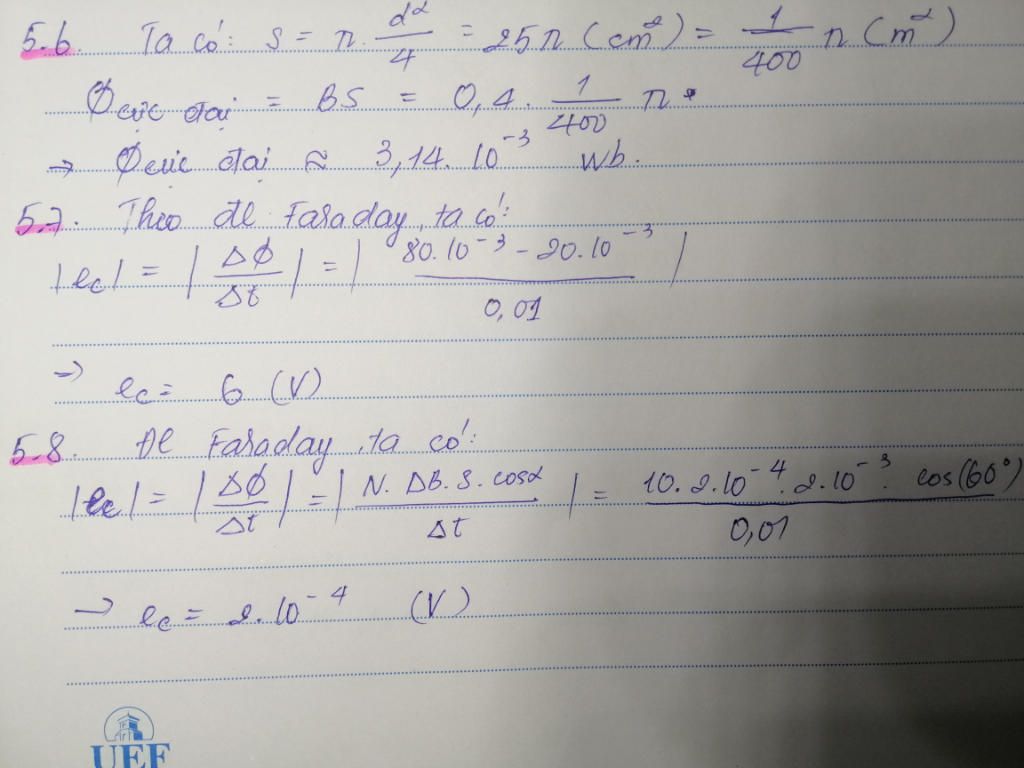 5.6. Ta có: S = π. d²/4 = 25π (cm²) = 1/400 π (m²)
Φ cực đại = BS = 0,4. 1/400 π.
→ Φ cực đại ≈ 3,14. 10⁻³ Wb.
5.7. Theo đl Faraday, ta có:
|ec| = |ΔΦ/Δt| = |80.10⁻³ - 20.10⁻³ / 0,01|
→ ec = 6 (V)
5.8. Đl Faraday, ta có:
|ec| = |ΔΦ/Δt| = |N. ΔB. S. cosα / Δt| = 10. 2.10⁻⁴. 2.10⁻³. cos(60°) / 0,01
→ ec = 2.10⁻⁴ (V)
UEF